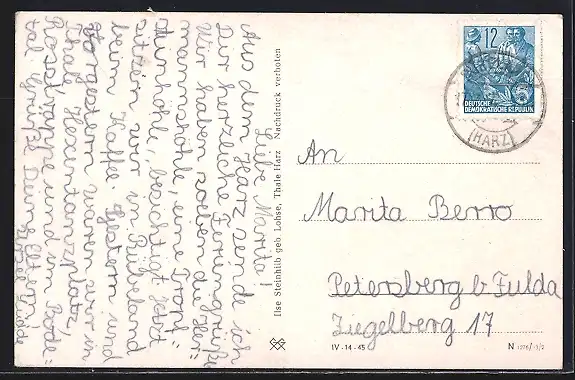 Liebe Marita!
Aus dem Harz sende ich
Dir herzliche Feriengrüße
Wir haben soeben die Her-
mannshöhle, eine Tropf-
steinhöhle, besichtigt. Jetzt
sitzen wir in Rübeland
beim Kaffee. Gestern und
vorgestern waren wir in
Thale Hexentanzplatz,
Rosstrappe und im Bode=
tal. Grüße Deine Eltern!
Ilse Steinhilb geb Lohse, Thale Harz Nachdruck verboten
12
DEUTSCHE
DEMOKRATISCHE REPUBLIK
(HARZ)
An
Marita Berro
Petersberg b. Fulda
Ziegelberg 17
IV-14-45
N